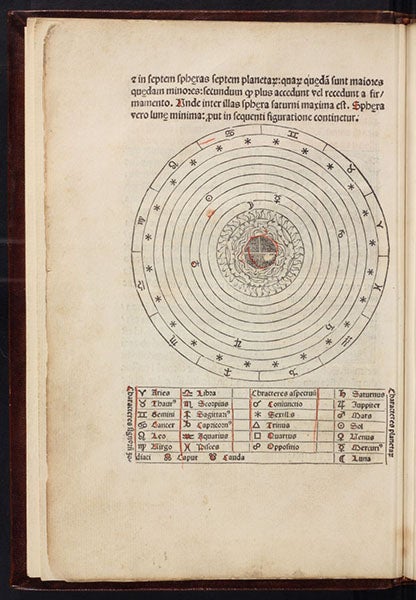 ⁊ in septem spheras septem planetaꝝ: quaꝝ quedã sunt maiores
quedam minores: secundum ꝙ plus accedunt vel recedunt a fir/
mamento. Unde inter illas sphera saturni maxima est. Sphera
vero lune minima: ꝓut in sequenti figuratione continetur.
♋ ♊ ♉ ♈ ♓ ♒ ♑ ♐ ♏ ♎ ♍ ♌
Characteres signoꝝ zo
♈ Aries ♎ Libra Characteres aspectuũ ♄ Saturnus
♉ Thaurꝰ ♏ Scorpius ☌ Coniunctio ♃ Juppiter
♊ Gemini ♐ Sagittariꝰ ⚹ Sextilis ♂ Mars
♋ Cancer ♑ Capricornꝰ △ Trinus ☉ Sol
♌ Leo ♒ Aquarius □ Quartus ♀ Venus
♍ Virgo ♓ Pisces ☍ Oppositio ☿ Mercuriꝰ
diaci ☊ Caput ☋ Cauda ☾ Luna
Characteres planetaꝝ